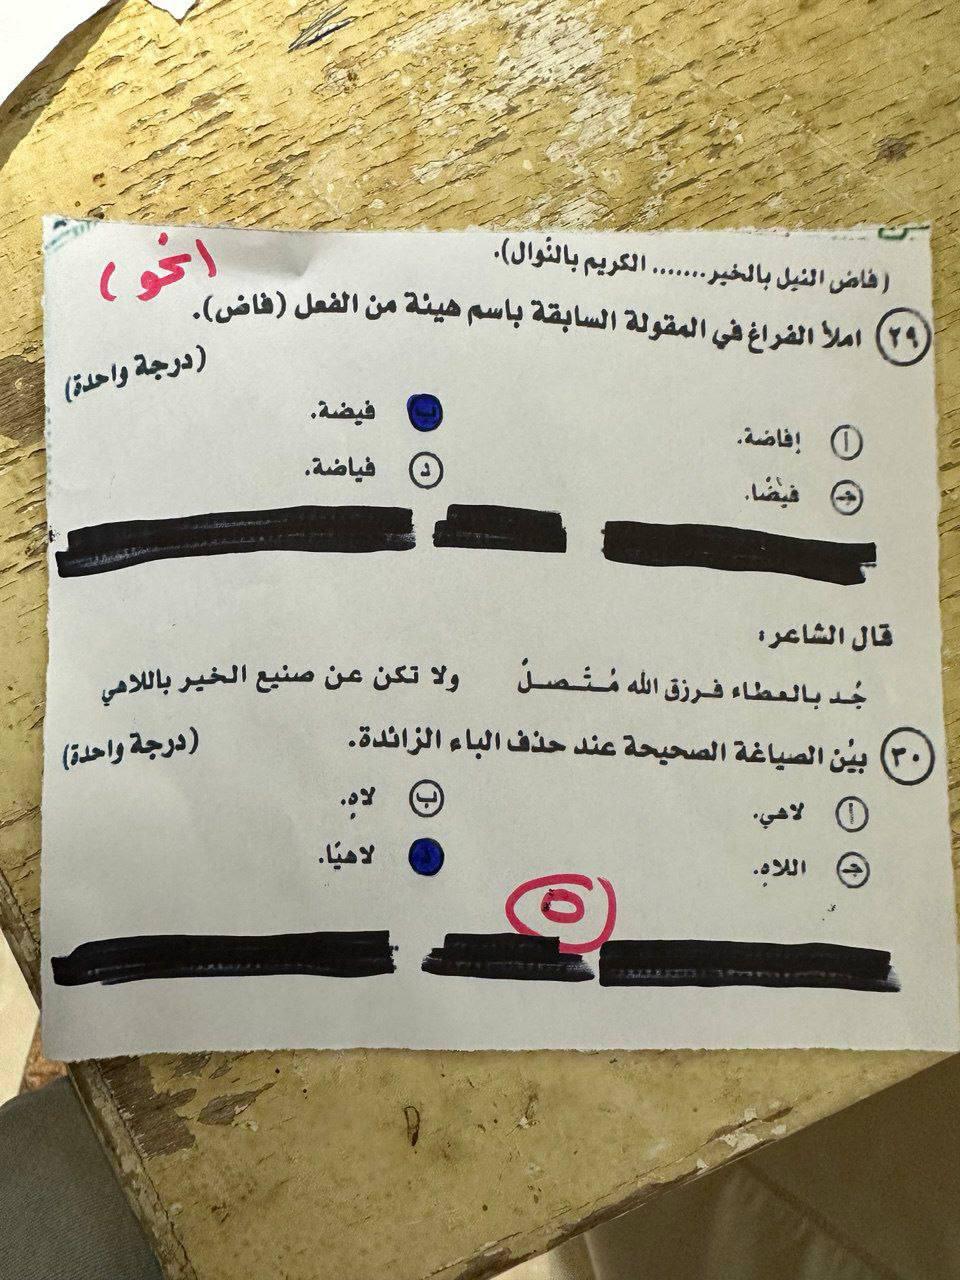 (نحو)
(فاض النيل بالخير....... الكريم بالنَّوال).
٢٩ املأ الفراغ في المقولة السابقة باسم هيئة من الفعل (فاض).
(درجة واحدة)
أ إفاضة.
ب فيضة.
جـ فيْضًا.
د فياضة.
قال الشاعر:
جُد بالعطاء فرزق الله مُتَّصلٌ ولا تكن عن صنيع الخير باللاهي
٣٠ بيِّن الصياغة الصحيحة عند حذف الباء الزائدة.
(درجة واحدة)
أ لاهي.
ب لاهٍ.
جـ اللاهِ.
د لاهيًا.
٥